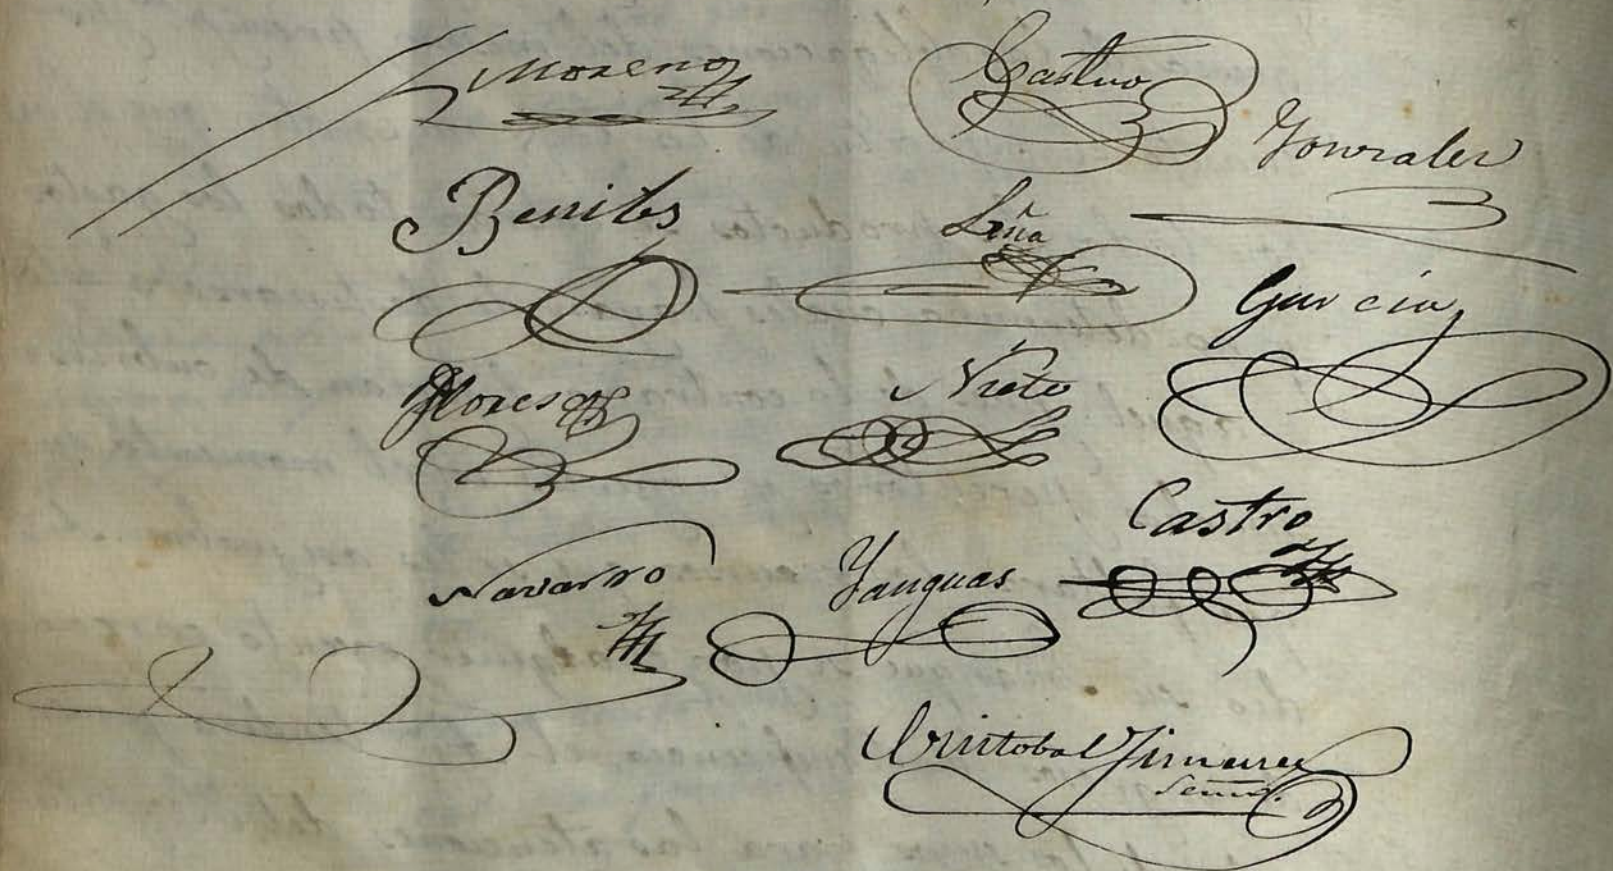 Moreno
Castro
Gonzalez
Benites
Leña
Garcia
Flores
Nieto
Castro
Navarro
Yanguas
Cristobal Jimenez